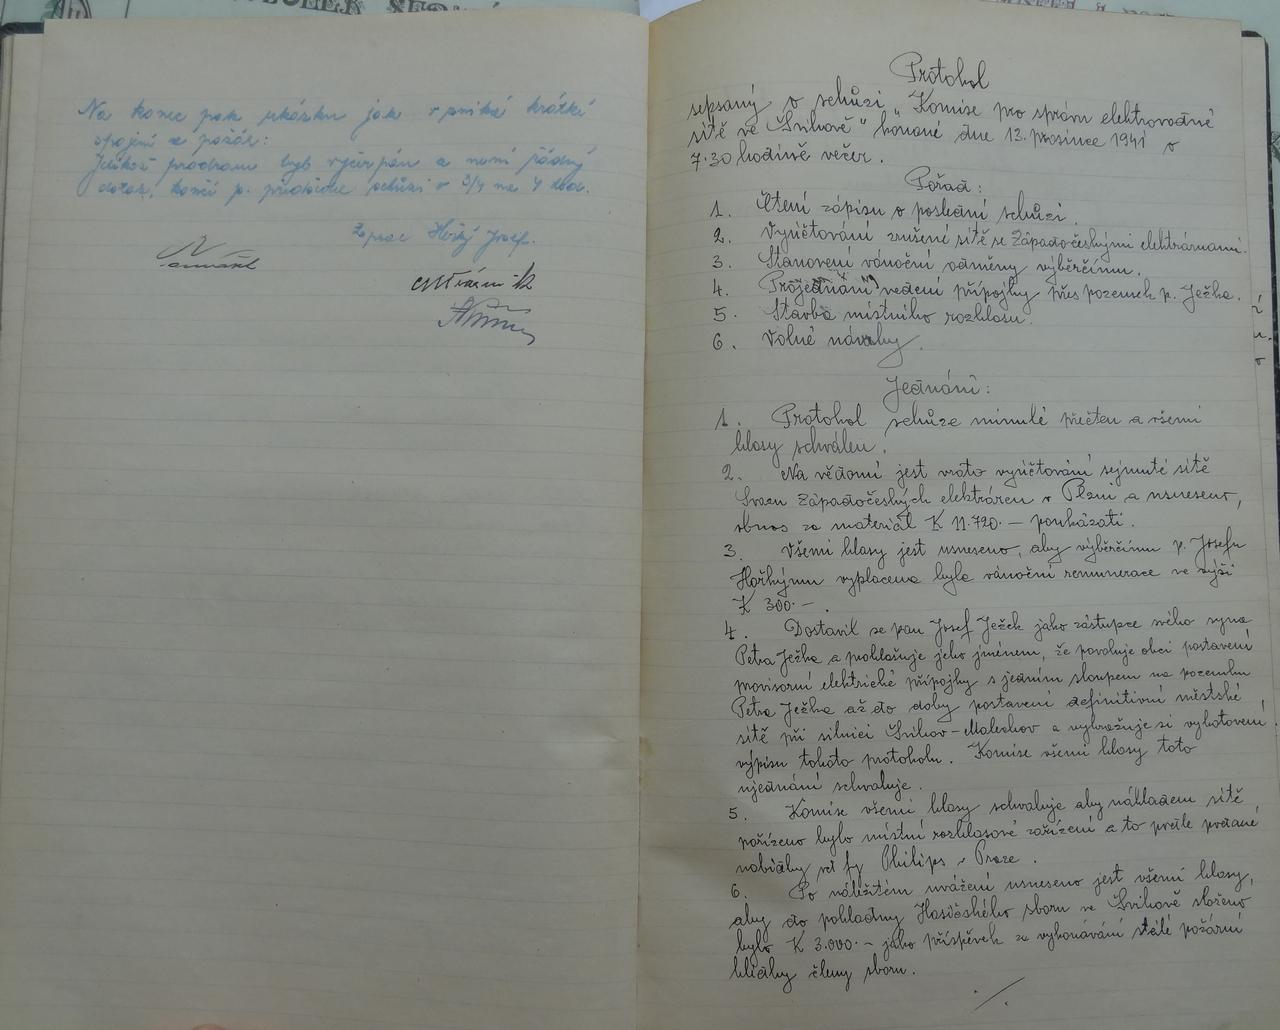 Na konec pak ukázka jak vzniká krátké
spojení a požár:
Jelikož program byl vyčerpán a není žádný
dotaz, končí p. předseda schůzi v 3/4 na 4 hod.
Zapsal Horký Josef.
Protokol
sepsaný o schůzi „Komise pro správu elektrovodné
sítě ve Švihově" konané dne 13. prosince 1941 v
7.30 hodině večer.
Pořad:
1. Čtení zápisu o poslední schůzi.
2. Vyúčtování zrušení sítě se Západočeskými elektrárnami.
3. Stanovení vánoční odměny výběrčímu.
4. Projednání vedení přípojky přes pozemek p. Ježka.
5. Stavba místního rozhlasu.
6. Volné návrhy.
Jednání:
1. Protokol schůze minulé přečten a všemi
hlasy schválen.
2. Na vědomí jest vzato vyúčtování sejmuté sítě
Svazu Západočeských elektráren v Plzni a usneseno,
obnos za materiál K 11.720.— poukázati.
3. Všemi hlasy jest usneseno, aby výběrčímu p. Josefu
Horkýmu vyplacena byla vánoční remunerace ve výši
K 300.— .
4. Dostavil se pan Josef Ježek jako zástupce svého syna
Petra Ježka a prohlašuje jeho jménem, že povoluje obci postavení
provisorní elektrické přípojky s jedním sloupem na pozemku
Petra Ježka až do doby postavení definitivní městské
sítě při silnici Švihov-Malechov a vyhražuje si vyhotovení
výpisu tohoto protokolu. Komise všemi hlasy toto
ujednání schvaluje.
5. Komise všemi hlasy schvaluje aby nákladem sítě
pořízeno bylo místní rozhlasové zařízení a to podle podané
nabídky od fy Philips v Praze.
6. Po náležitém uvážení usneseno jest všemi hlasy,
aby do pokladny Hasičského sboru ve Švihově složeno
bylo K 3.000.— jako příspěvek za vykonávání stálé požární
hlídky členy sboru.
./.